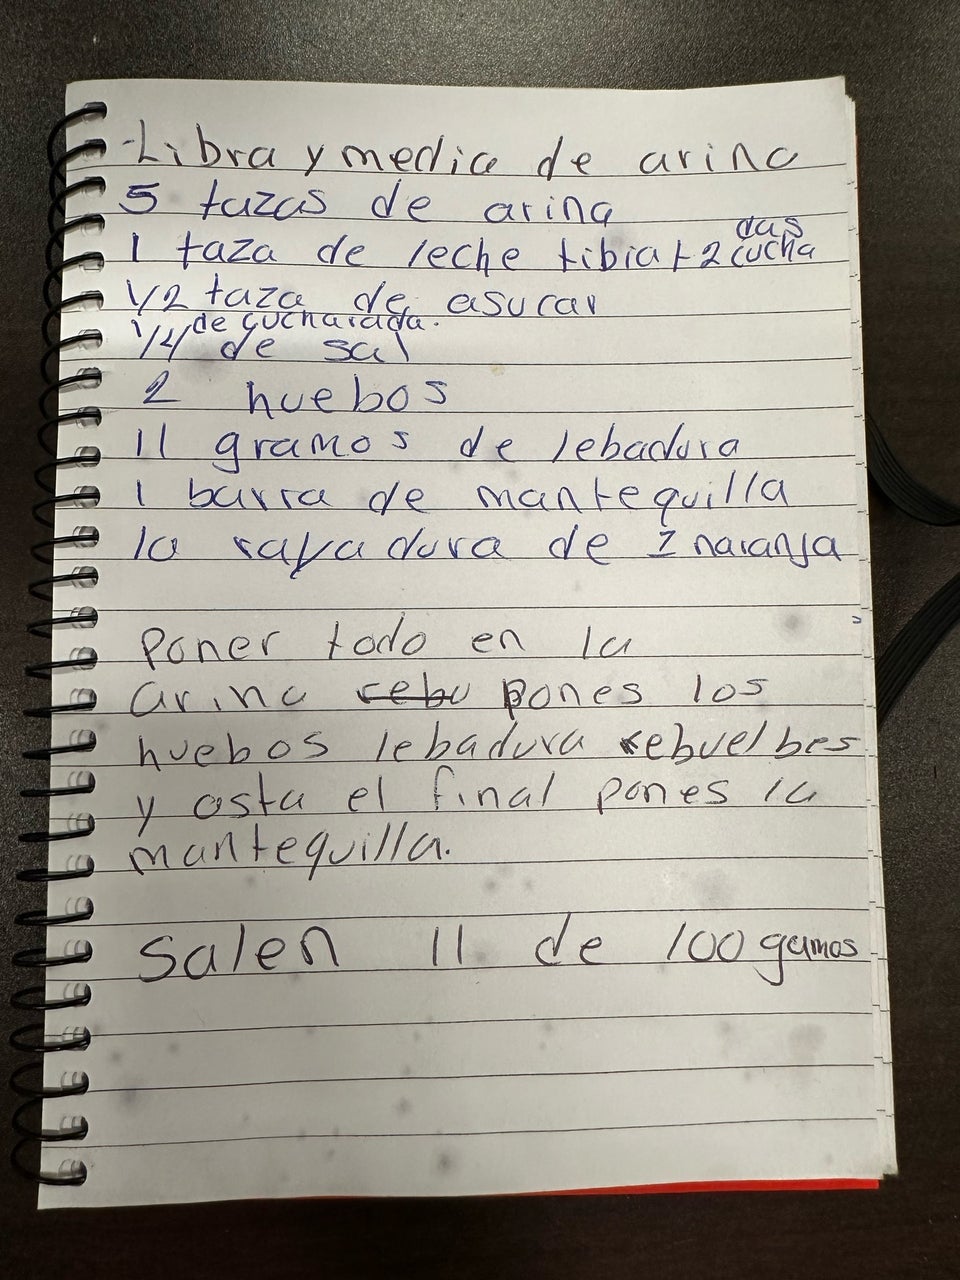 -Libra y media de arina
5 tazas de arina
1 taza de leche tibia + 2 cucha
das
1/2 taza de asucar
de cucharada.
1/4 de sal
2 huebos
11 gramos de lebadura
1 barra de mantequilla
la rayadura de 1 naranja
Poner todo en la
arina rebu pones los
huebos lebadura rebuelbes
y asta el final pones la
mantequilla.
Salen 11 de 100 gamos